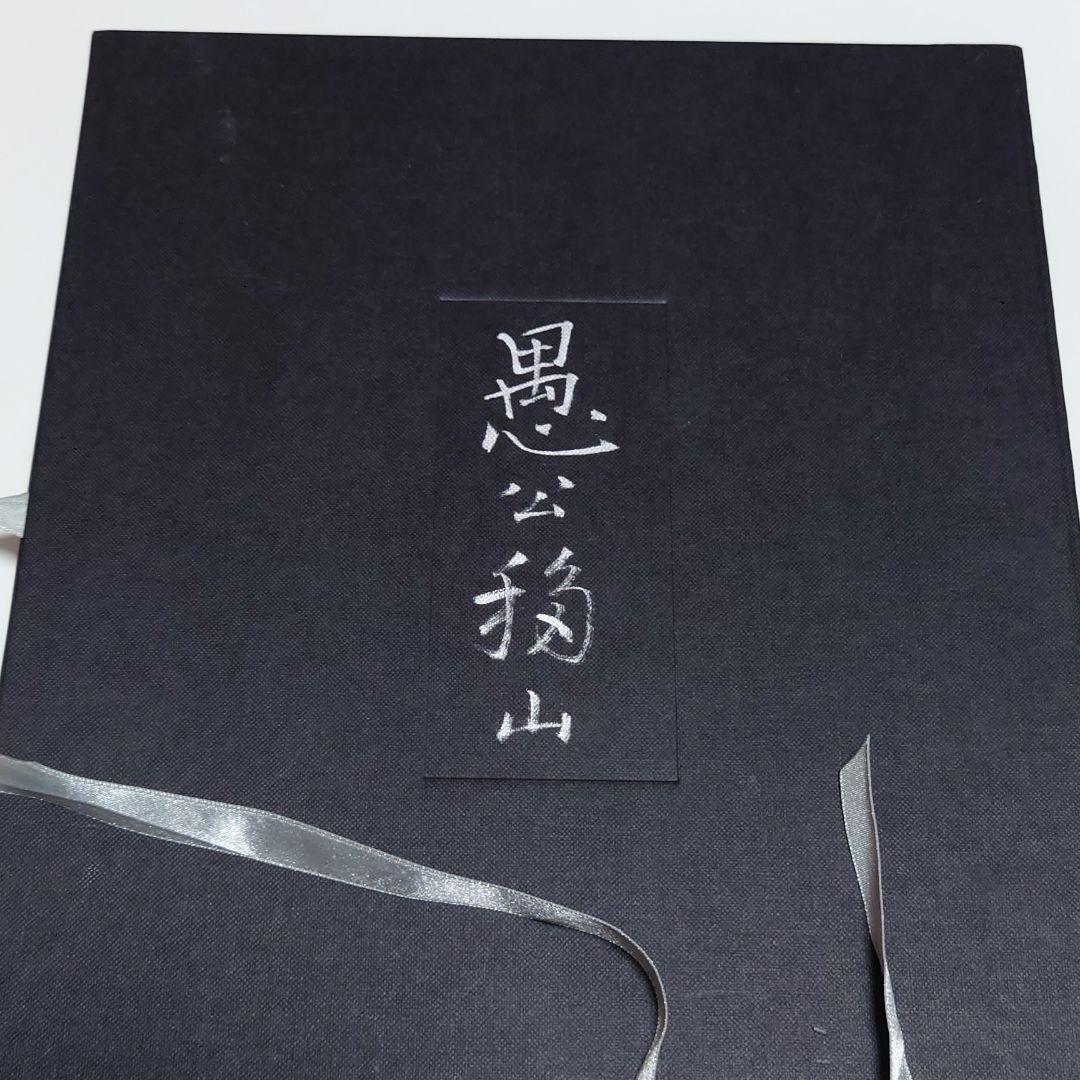 愚公移山